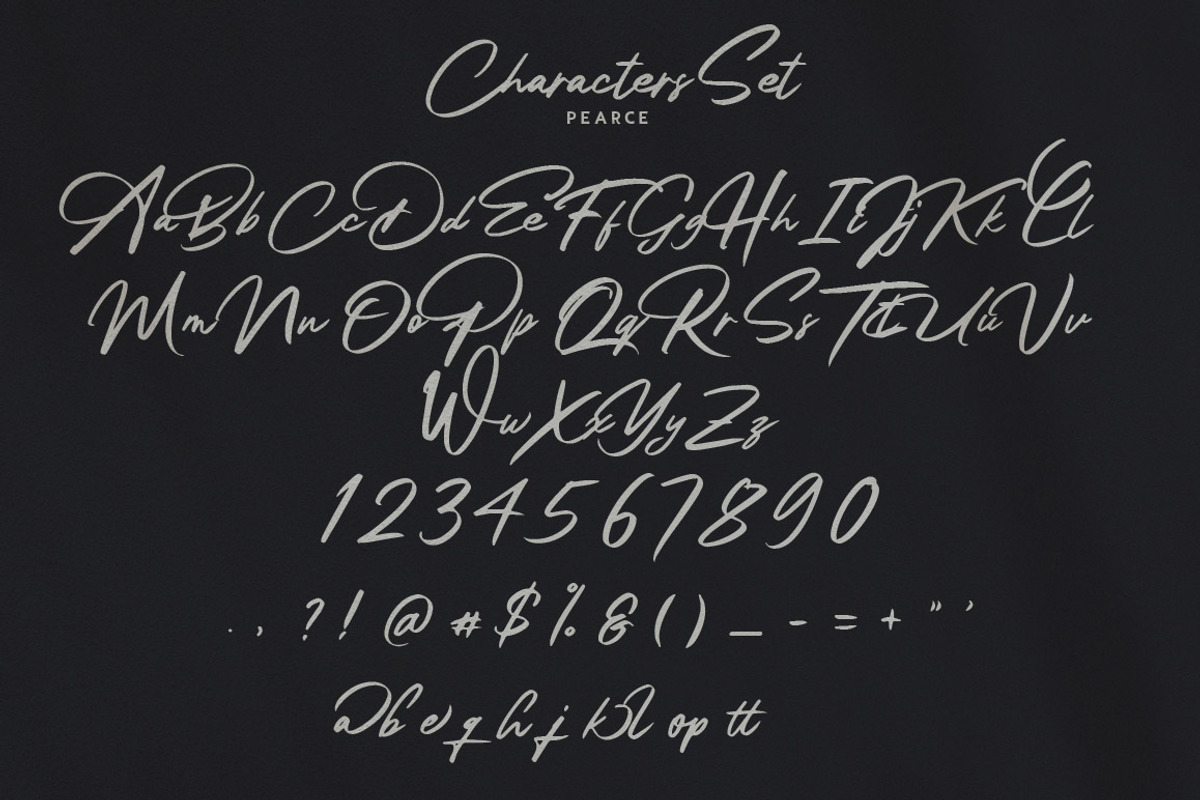 Characters Set
PEARCE
Aa Bb Cc Dd Ee Ff Gg Hh Ii Jj Kk Ll
Mm Nn Oo Pp Qq Rr Ss Tt Uu Vv
Ww Xx Yy Zz
1 2 3 4 5 6 7 8 9 0
. , ? ! @ # $ % & ( ) _ - = + " '
a b e g h j k l op tt